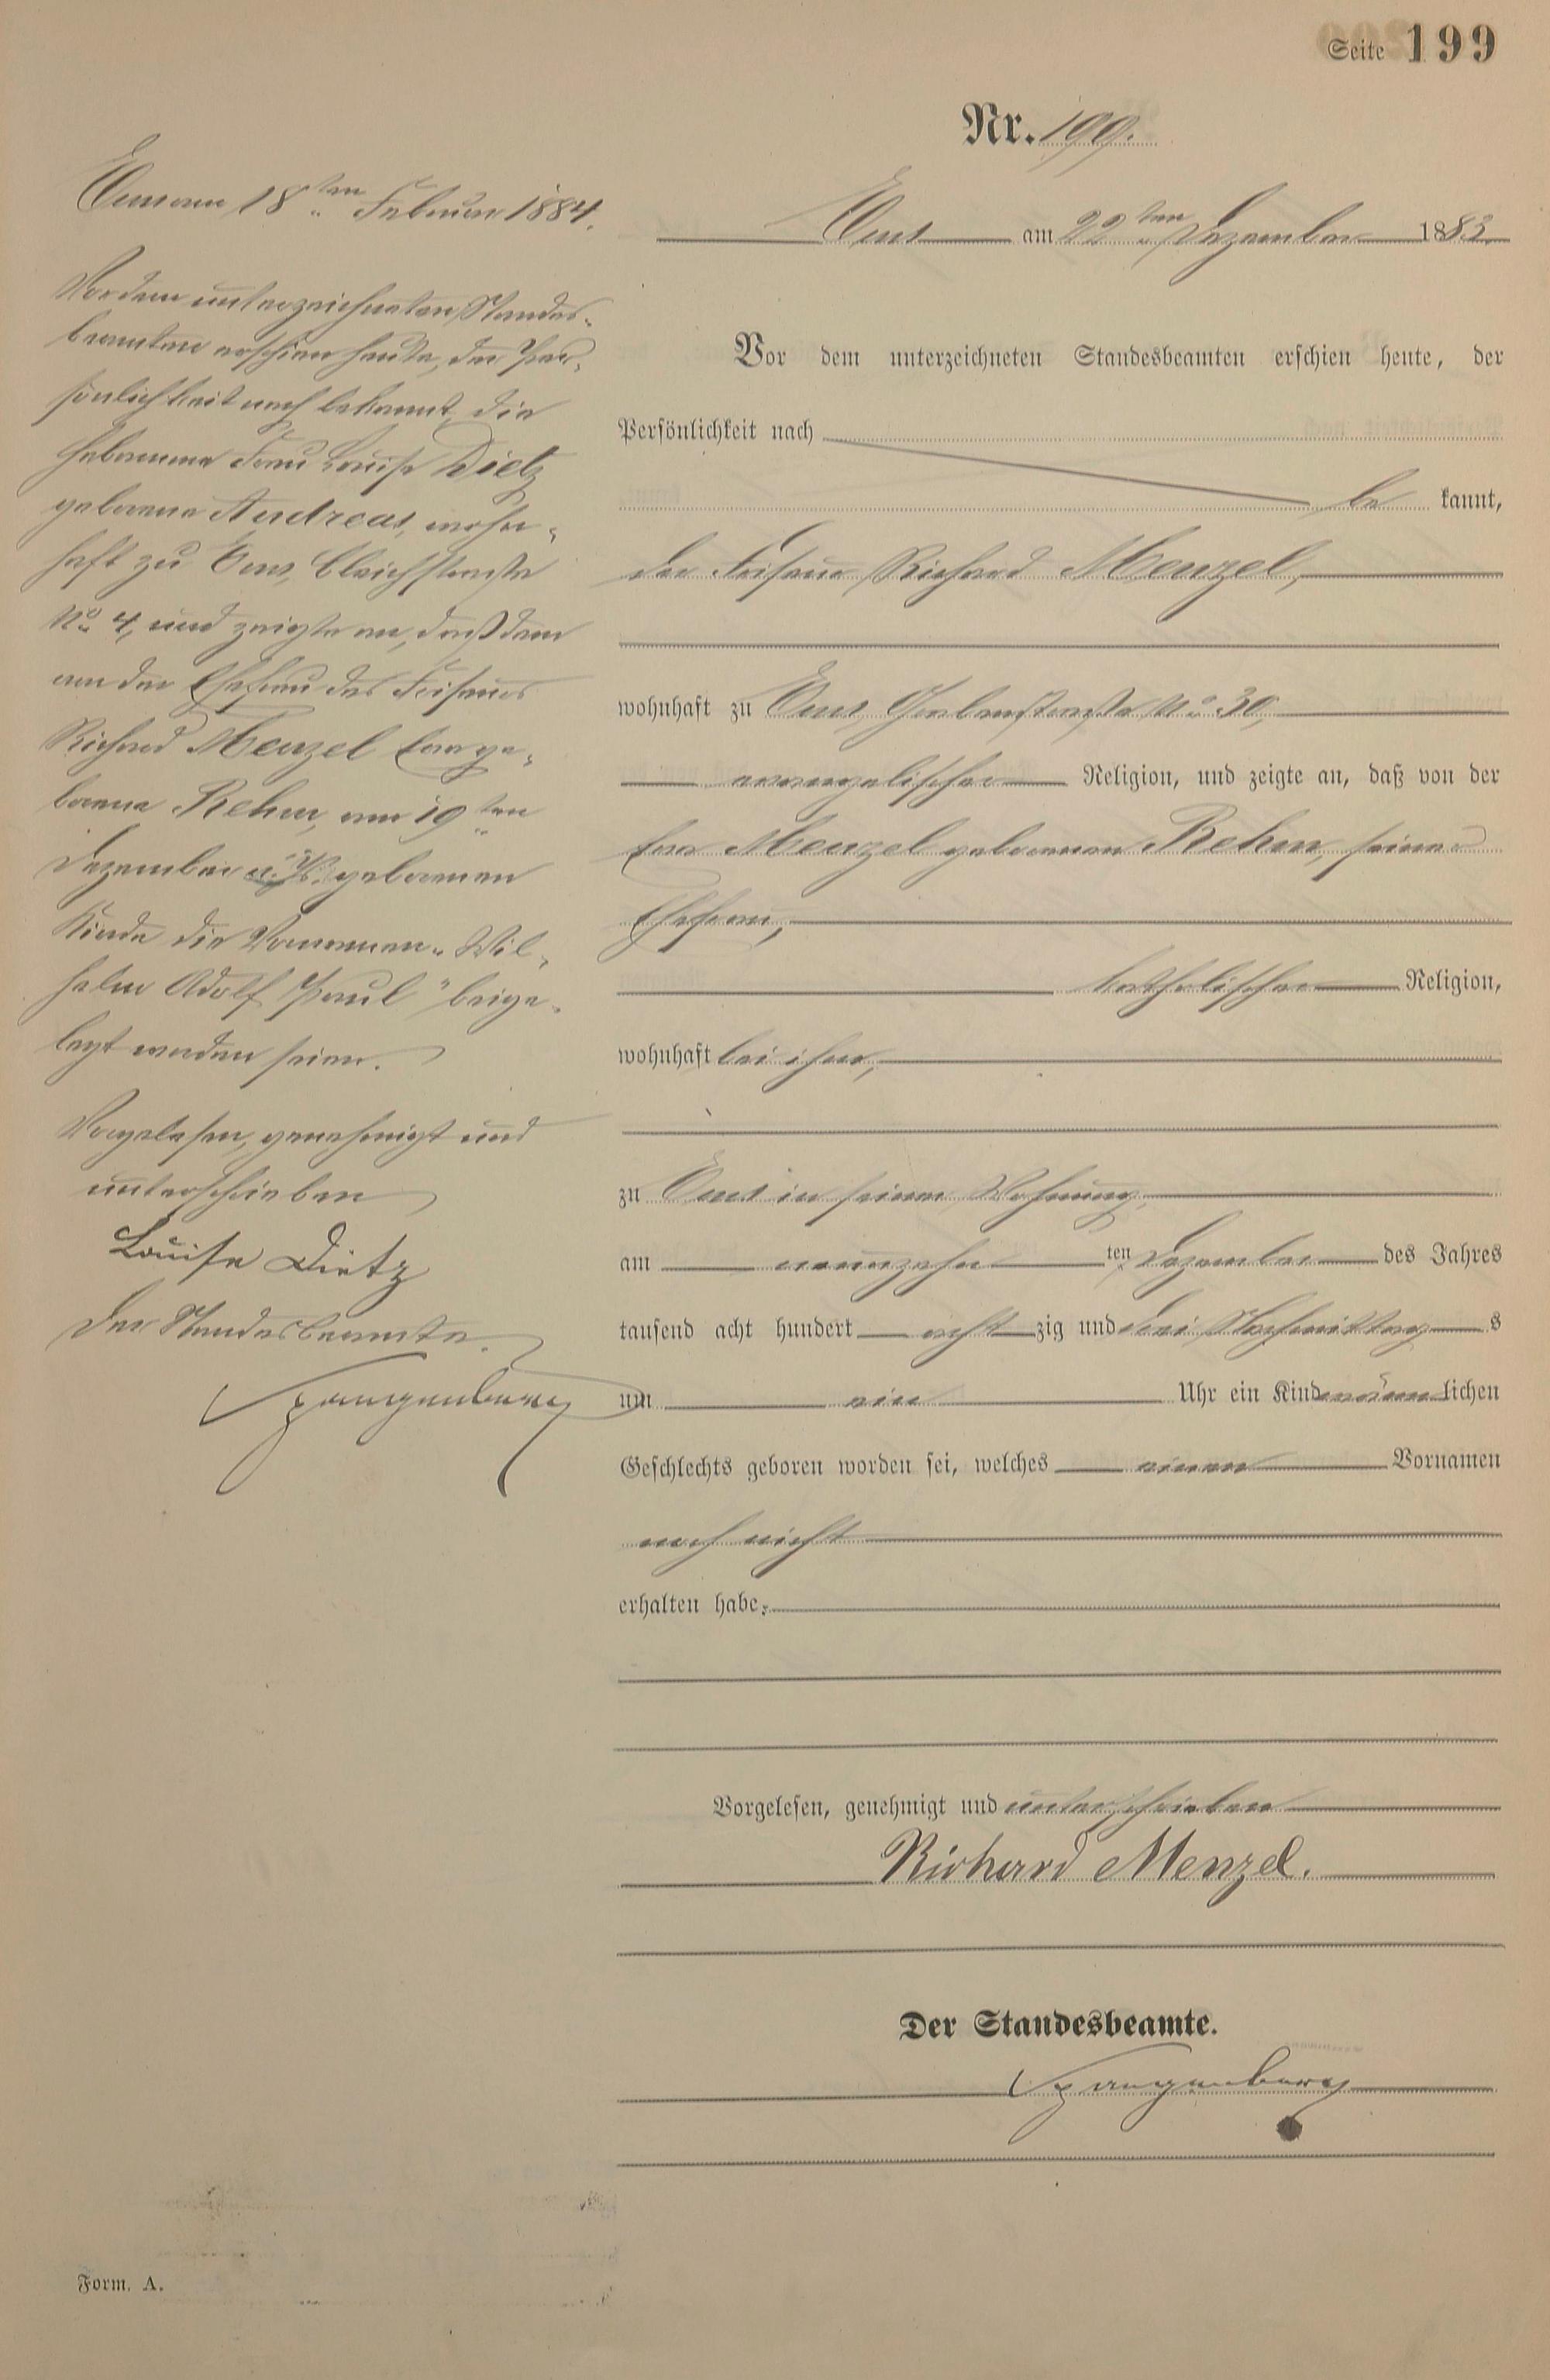 Seite 199
Nr. 199.
Ems am 22ten Dezember 1883.
Vor dem unterzeichneten Standesbeamten erschien heute, der
Persönlichkeit nach
be kannt,
der Friseur Richard Menzel,
wohnhaft zu Ems, Grabenstraße No 30,
evangelischer Religion, und zeigte an, daß von der
Eva Menzel geborenen Rehm, seiner
Ehefrau,
katholischer Religion,
wohnhaft bei ihm,
zu Ems in seiner Wohnung,
am neunzehn ten Dezember des Jahres
tausend acht hundert acht zig und drei Nachmittag s
um ein Uhr ein Kind männ lichen
Geschlechts geboren worden sei, welches einen Vornamen
noch nicht
erhalten habe.
Vorgelesen, genehmigt und unterschrieben
Richard Menzel.
Der Standesbeamte.
Spangenberg
Ems am 18ten Februar 1884.
Vor dem unterzeichneten Standes-
beamten erschien heute, der Per-
sönlichkeit nach bekannt, die
Hebamme Frau Louise Dietz
geborene Andreas, wohn-
haft zu Ems, Bleichstraße
No 4, und zeigte an, daß dem
von der Ehefrau des Friseurs
Richard Menzel Eva ge-
borene Rehm, am 19ten
Dezember v. Js. geborenen
Kinde die Vornamen „Wil-
helm Adolf Paul" beige-
legt worden seien.
Vorgelesen, genehmigt und
unterschrieben
Louise Dietz
Der Standesbeamte.
Spangenberg
Form. A.